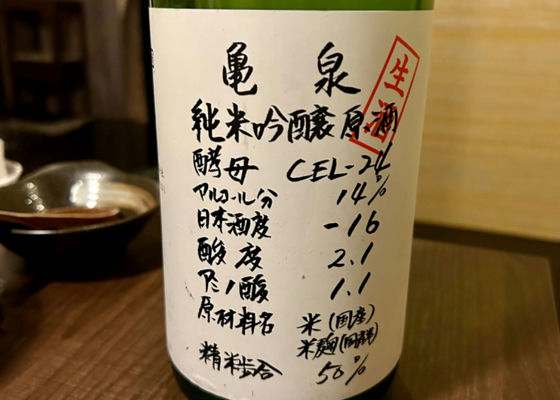 亀泉
生酒
純米吟醸原酒
酵母 CEL-24
アルコール分 14%
日本酒度 -16
酸度 2.1
アミノ酸 1.1
原材料名 米(国産)
米麹(国産米)
精米歩合 50%